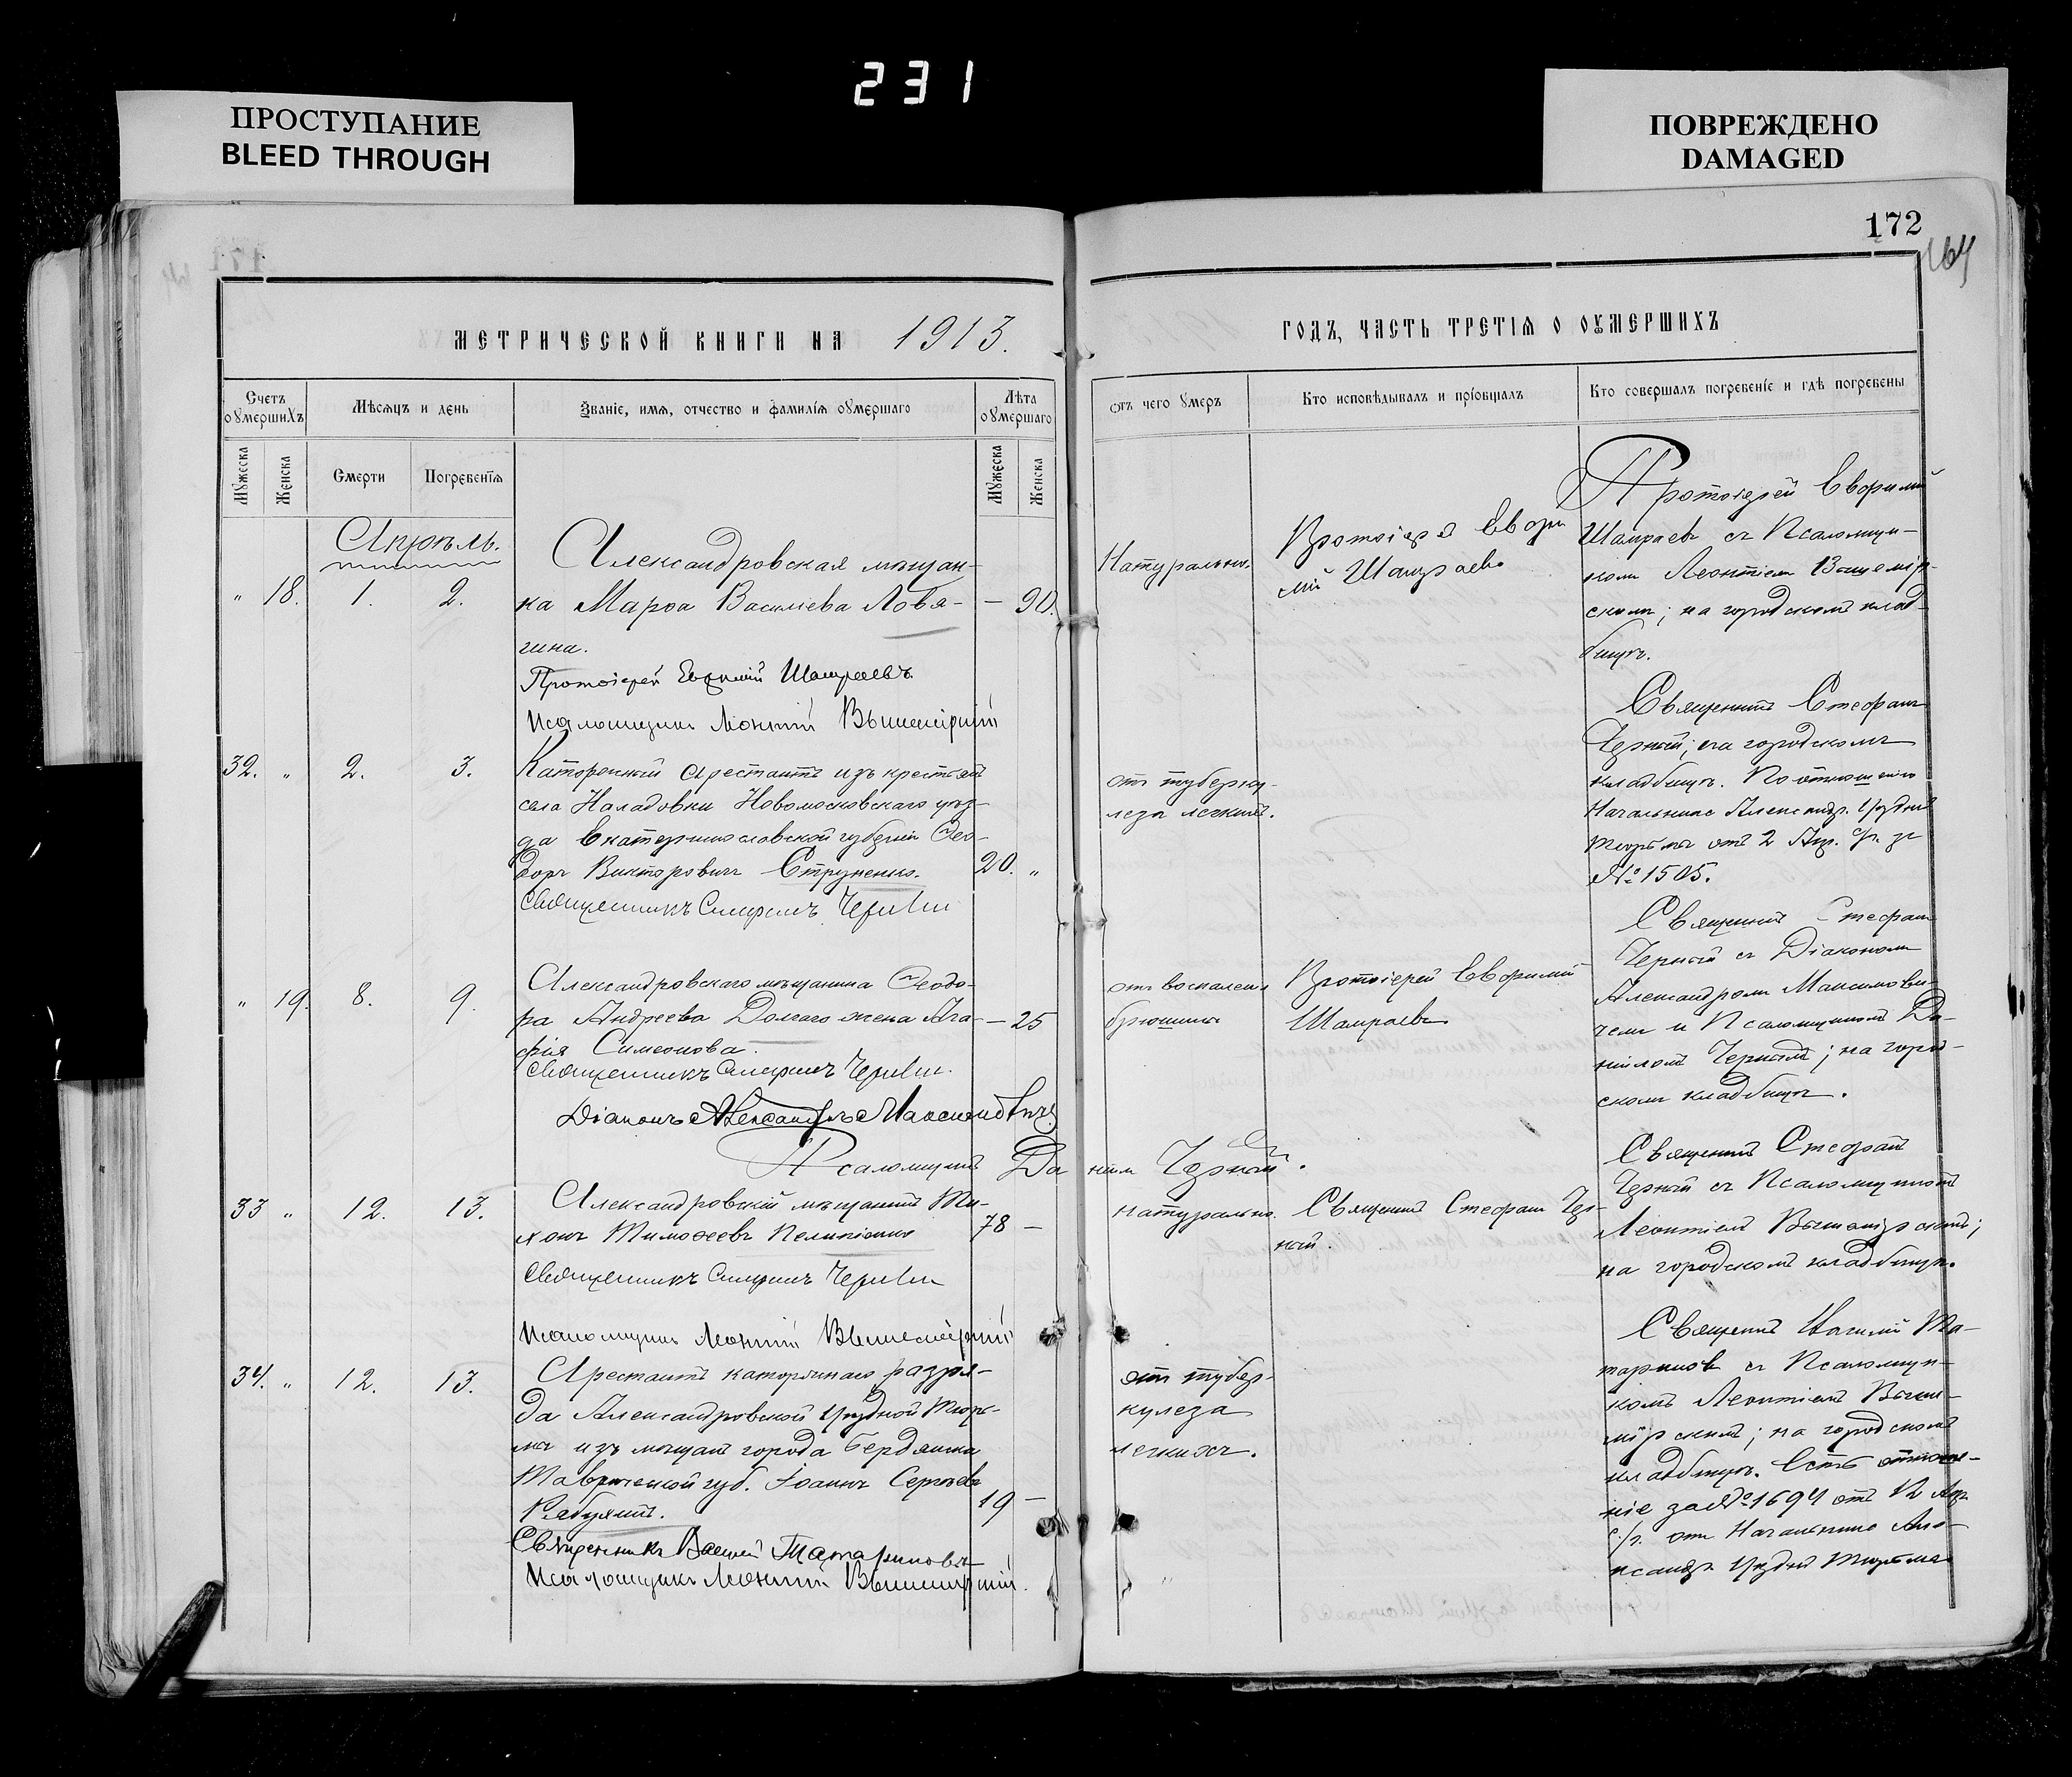 231
ПРОСТУПАНИЕ
BLEED THROUGH
ПОВРЕЖДЕНО
DAMAGED
172
164
МЕТРИЧЕСКОЙ КНИГИ НА 1913.
ГОДЪ, ЧАСТЬ ТРЕТІЯ О ОУМЕРШИХЪ
Счетъ оумершихъ
Мѣсяцъ и день
Званіе, имя, отчество и фамилія оумершаго
Лѣта оумершаго
Мужеска
Женска
Смерти
Погребенія
Мужеска
Женска
отъ чего умеръ
Кто исповѣдывалъ и пріобщалъ
Кто совершалъ погребеніе и гдѣ погребены
Апрѣль.
" 18. 1. 2.
Александровская мѣщан-
ка Марѳа Василіева Ловя-
гина.
— 90.
Протоіерей Евѳимій Шамраевъ.
Псаломщикъ Леонтій Вышемірскій
Натурально.
Протоіерей Евфи
мій Шамраевъ
Протоіерей Евфимій
Шамраевъ съ Псаломщи-
комъ Леонтіем Вышемір-
скимъ; на городскомъ клад-
бищѣ.
32. " 2. 3.
Каторжный арестантъ изъ крестьянъ
села Новомосковскаго уѣз-
да Екатеринославской губерніи Ѳео-
доръ Викторовичъ Струненко.
20. "
Священникъ Стефанъ Черный
отъ туберку-
леза легкихъ.
Священникъ Стефанъ
Черный; на городскомъ
кладбищѣ. По отношенію
Начальника Александр. Уѣздной
Тюрьмы отъ 2 Апр. с/г. за
№ 1505.
" 19. 8. 9.
Александровскаго мѣщанина Ѳеодо-
ра Андреева Долгаго жена Ага-
фія Симеонова.
— 25
Священникъ Стефанъ Черный.
Діаконъ Александръ Максимовичъ
Псаломщикъ Даніилъ Черный.
отъ воспален.
брюшины
Протоіерей Евфимій
Шамраевъ
Священникъ Стефанъ
Черный съ Діакономъ
Александромъ Максимови-
чемъ и Псаломщикомъ Да-
ніиломъ Чернымъ; на город-
скомъ кладбищѣ.
33 " 12. 13.
Александровскій мѣщанинъ Ти-
хонъ Тимоѳеевъ
78 —
Священникъ Стефанъ Черный
Псаломщикъ Леонтій Вышемірскій
натурально.
Священникъ Стефанъ Чер-
ный.
Священникъ Стефанъ
Черный съ Псаломщикомъ
Леонтіемъ Вышемірскимъ;
на городскомъ кладбищѣ.
34. " 12. 13.
Арестантъ каторжнаго разря-
да Александровской Уѣздной Тюрь-
мы изъ мѣщанъ города Бердянска
Таврической губ. Іоаннъ Сергѣевъ
19 —
Священникъ Василій Татариновъ
Псаломщикъ Леонтій Вышемірскій.
отъ тубер-
кулеза
легкихъ.
Священникъ Василій Та-
тариновъ съ Псаломщи-
комъ Леонтіемъ Выше-
мірскимъ; на городскомъ
кладбищѣ. Есть отноше-
ніе за № 1694 отъ 12 Апр.
с/г. отъ Начальника Але-
ксандр. Уѣздной Тюрьмы